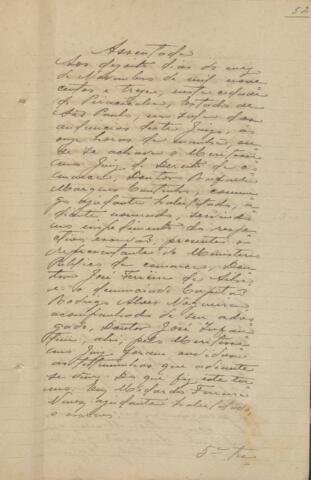 52
Assentada
Aos dezoito dias do mez
de Novembro de mil nove
centos e treze, nesta cidade
de Piracicaba, Estado de
São Paulo, em sala das
audiencias deste Juizo, às
onze horas da manhã, on
de se achava o Meritissi
mo Juiz de Direito da co
marca, Doutor Rafael
Marques Coutinho, commi
go ajudante habilitado, a
diante nomeado, servindo
no impedimento do respe
ctivo escrivão, presentes o
representante do Ministerio
Publico da comarca, Dou
tor José Ferreira de
e o denunciado Capitão
Rodrigo Alves Nogueira
acompanhado de seu advo
gado, Doutor José
ahi, pelo Meritissi
mo Juiz foram ouvidas
as testemunhas que adiante
se vêm. Do que fiz este ter
mo. Eu, Ferreira
Neves, ajudante habilitado,
o escrevi.
5ª Tes